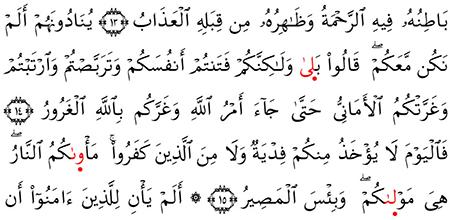 بَاطِنُهُۥ فِيهِ ٱلرَّحْمَةُ وَظَٰهِرُهُۥ مِن قِبَلِهِ ٱلْعَذَابُ ۝١٣ يُنَادُونَهُمْ أَلَمْ
نَكُن مَّعَكُمْ ۖ قَالُوا۟ بَلَىٰ وَلَٰكِنَّكُمْ فَتَنتُمْ أَنفُسَكُمْ وَتَرَبَّصْتُمْ وَٱرْتَبْتُمْ
وَغَرَّتْكُمُ ٱلْأَمَانِىُّ حَتَّىٰ جَآءَ أَمْرُ ٱللَّهِ وَغَرَّكُم بِٱللَّهِ ٱلْغَرُورُ ۝١٤
فَٱلْيَوْمَ لَا يُؤْخَذُ مِنكُمْ فِدْيَةٌ وَلَا مِنَ ٱلَّذِينَ كَفَرُوا۟ ۚ مَأْوَىٰكُمُ ٱلنَّارُ ۖ
هِىَ مَوْلَىٰكُمْ ۖ وَبِئْسَ ٱلْمَصِيرُ ۝١٥ ۞ أَلَمْ يَأْنِ لِلَّذِينَ ءَامَنُوٓا۟ أَن